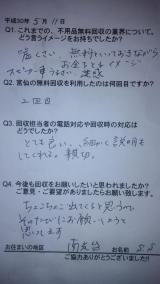 平成30年 5月 11日
Q1. これまでの、不用品無料回収の業界について、
どう言うイメージをお持ちでしたか?
無料といっておきながら
お金をとるイメージ
スピーカーうるさい 迷惑
Q2. 富仙の無料回収を利用したのは何回目ですか?
2回目
Q3. 回収担当者の電話対応や回収時の対応は
どうでしたか?
とても良い、細かく説明も
してくれる。親切。
Q4. 今後も回収をお願いしたいと思われましたか?
ご意見・ご要望がありましたらお願い致します。
ちょこちょこ出てくると思うので
そのたびにお願いしようと
思います
お住まいの地区
お名前
ご協力ありがとうございました!!